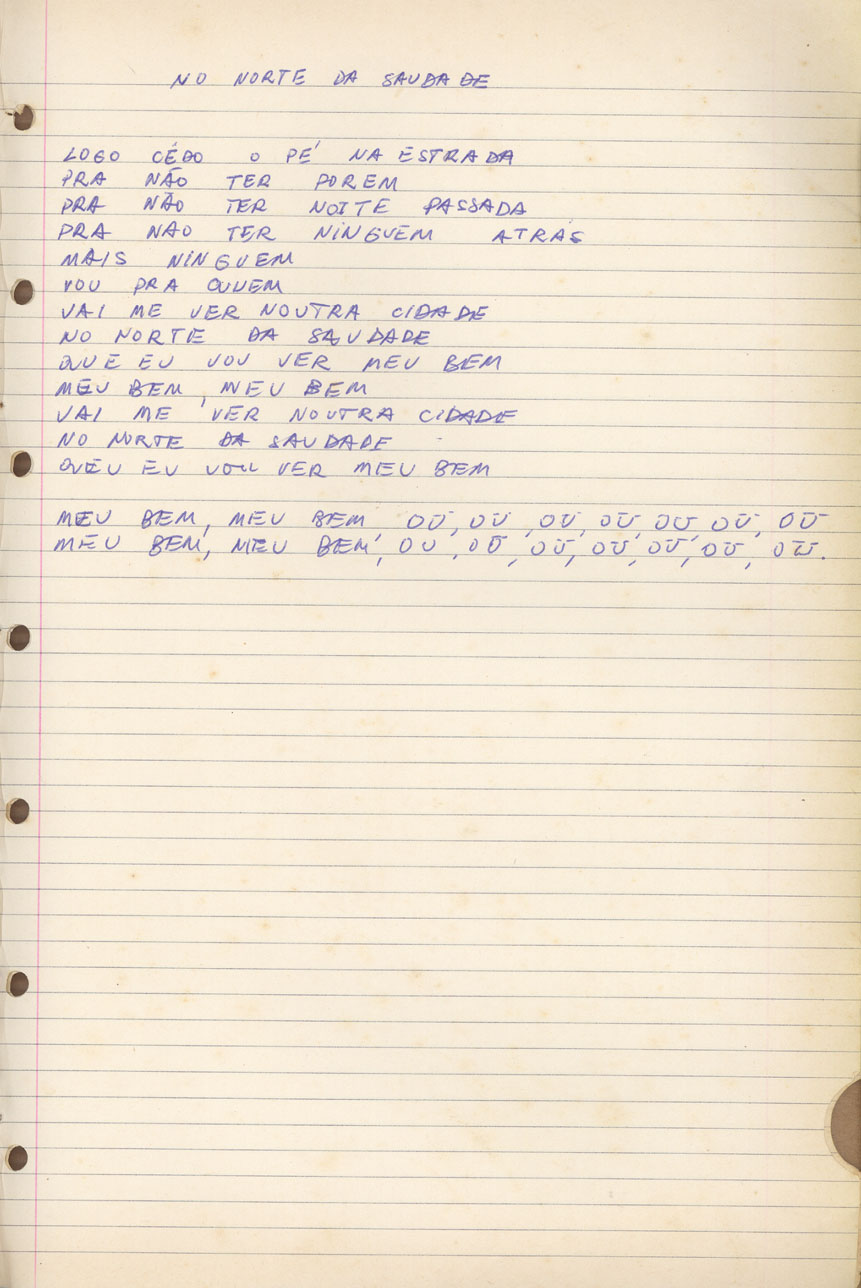 NO NORTE DA SAUDADE
LOGO CÉDO O PÉ NA ESTRADA
PRA NÃO TER POREM
PRA NÃO TER NOITE PASSADA
PRA NÃO TER NINGUÉM ATRÁS
MAIS NINGUEM
VOU PRA QUUEM
VAI ME VER NOUTRA CIDADE
NO NORTE DA SAUDADE
QUE EU VOU VER MEU BEM
MEU BEM, MEU BEM
VAI ME VER NOUTRA CIDADE
NO NORTE DA SAUDADE
QUEU EU VOU VER MEU BEM
MEU BEM, MEU BEM OU, OU, OU, OU, OU, OU, OU
MEU BEM, MEU BEM, OU, OU, OU, OU, OU, OU, OU.